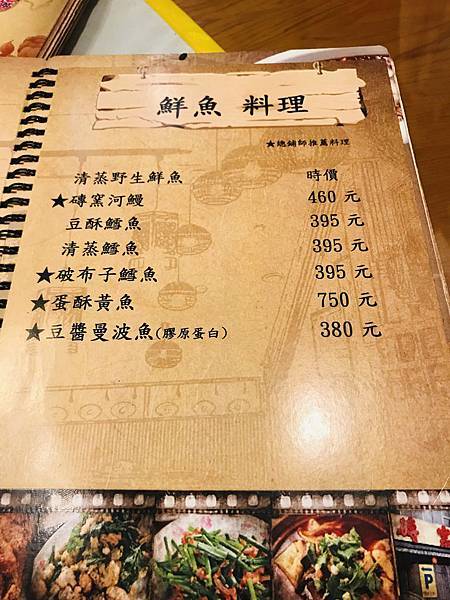 鮮魚 料理
★總鋪師推薦料理
清蒸野生鮮魚 時價
★磚窯河鰻 460 元
豆酥鱈魚 395 元
清蒸鱈魚 395 元
★破布子鱈魚 395 元
★蛋酥黃魚 750 元
★豆醬曼波魚(膠原蛋白) 380 元
P